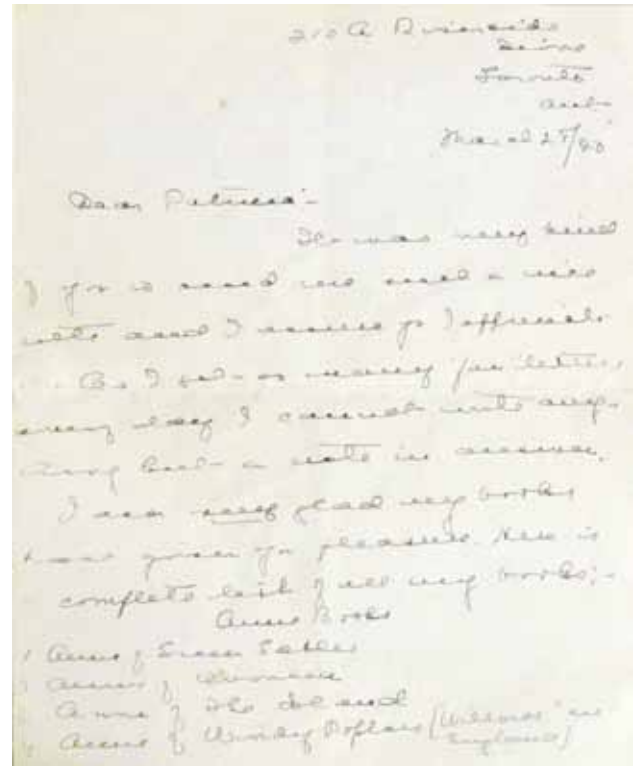 210 A Riverside
Drive
Toronto
Ont.
March 28/40
Dear Patricia:-
It was very kind
of you to send me such a nice
note and I assure you I appreciate
As I get so many fan letters
every day I cannot write any-
thing but a note in answer.
I am very glad my books
have given you pleasure. Here is
complete list of all my books:-
Anne Books
Anne of Green Gables
Anne of Avonlea
Anne of the Island
Anne of Windy Poplars (Willows "in England)